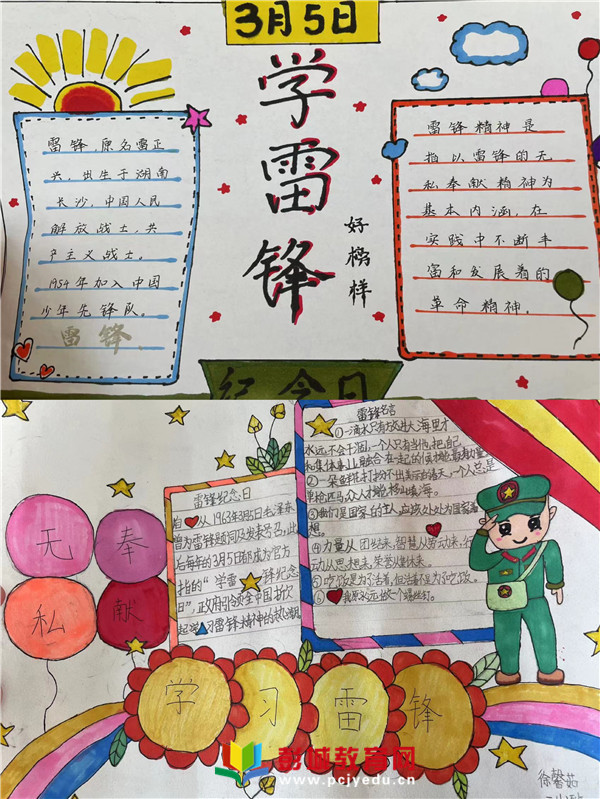 3月5日
学雷锋
好榜样
纪念日
雷锋,原名雷正
兴,出生于湖南
长沙,中国人民
解放战士,共
产主义战士。
1954年加入中国
少年先锋队。
雷锋
雷锋精神是
指以雷锋的无
私奉献精神为
基本内涵,在
实践中不断丰
富和发展着的
革命精神。
雷锋名言
①一滴水只有放进大海里才
永远不会干涸,一个人只有当他把自己
和集体事业融合在一起的时候才能最有力量
②一朵鲜花打扮不出美丽的春天,一个人总是
单枪匹马,众人才能移山填海。
③我们是国家的主人,应该处处为国家着
想。
④力量从团结来,智慧从劳动来,行
动从思想来,荣誉从集体来。
⑤吃饭是为了活着,但活着不是为了吃饭。
⑥我愿永远做一个螺丝钉。
雷锋纪念日
自从1963年3月5日毛泽东
曾为雷锋题词及发表号召,此
后每年的3月5日都成为官方
指的“学雷锋纪念
日”,政府引领全中国掀
起学习雷锋精神的热潮
无
奉
私
献
学
习
雷
锋
徐馨茹
彭城教育网
www.pcjyedu.cn